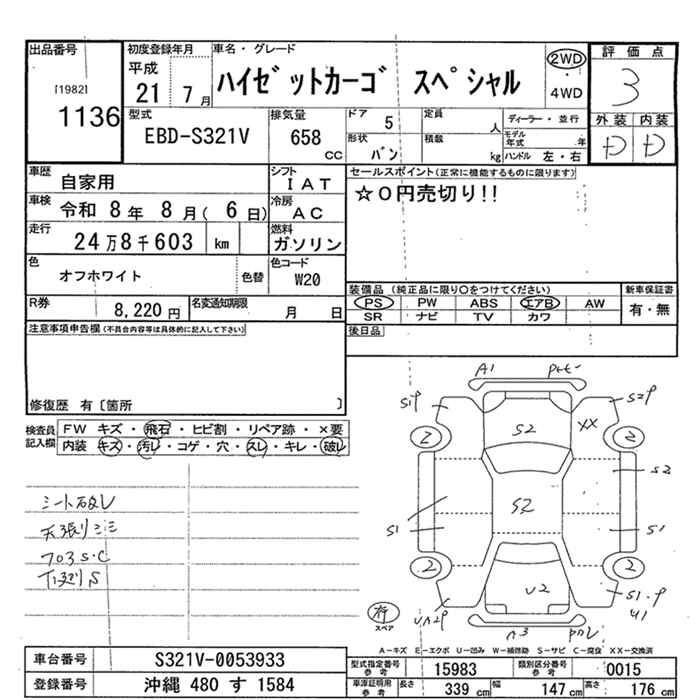 出品番号
[1982]
1136
初度登録年月
平成
21 7月
車名・グレード
ハイゼットカーゴ スペシャル
2WD
・
4WD
評価点
3
外装 内装
D D
型式
EBD-S321V
排気量
658
CC
ドア
5
形状
バン
定員
人
積載
kg
ディーラー・並行
モデル年式 年
ハンドル 左・右
車歴
自家用
シフト
IAT
車検
令和 8年 8月( 6日)
冷房
AC
走行
24万8千603 km
燃料
ガソリン
色
オフホワイト
色替
色コード
W20
R券
8,220 円
名変通知期限
月 日
セールスポイント(正常に機能するものに限ります)
☆0円売切り!!
装備品(純正品に限り○をつけてください)
新車保証書
PS PW ABS エアB AW
有・無
SR ナビ TV カワ
後日品
注意事項申告欄(不具合内容等は具体的に記入して下さい)
修復歴 有〔箇所 〕
検査員記入欄
FW キズ・飛石・ヒビ割・リペア跡・×要
内装・キズ・汚レ・コゲ・穴・スレ・キレ・破レ
シート破レ
天張リ
A1
S1P
S2P
S2
XX
2
2
S2
S2
S1
S1
2
2
U2
S1.P
U1
スペア
A-キズ E-エクボ U-凹み W-補修跡 S-サビ C-腐食 XX-交換済
車台番号
S321V-0053933
登録番号
沖縄 480 す 1584
型式指定番号
参考
15983
類別区分番号
参考
0015
車庫証明用
参考
長さ
339 cm
幅
147 cm
高さ
176 cm